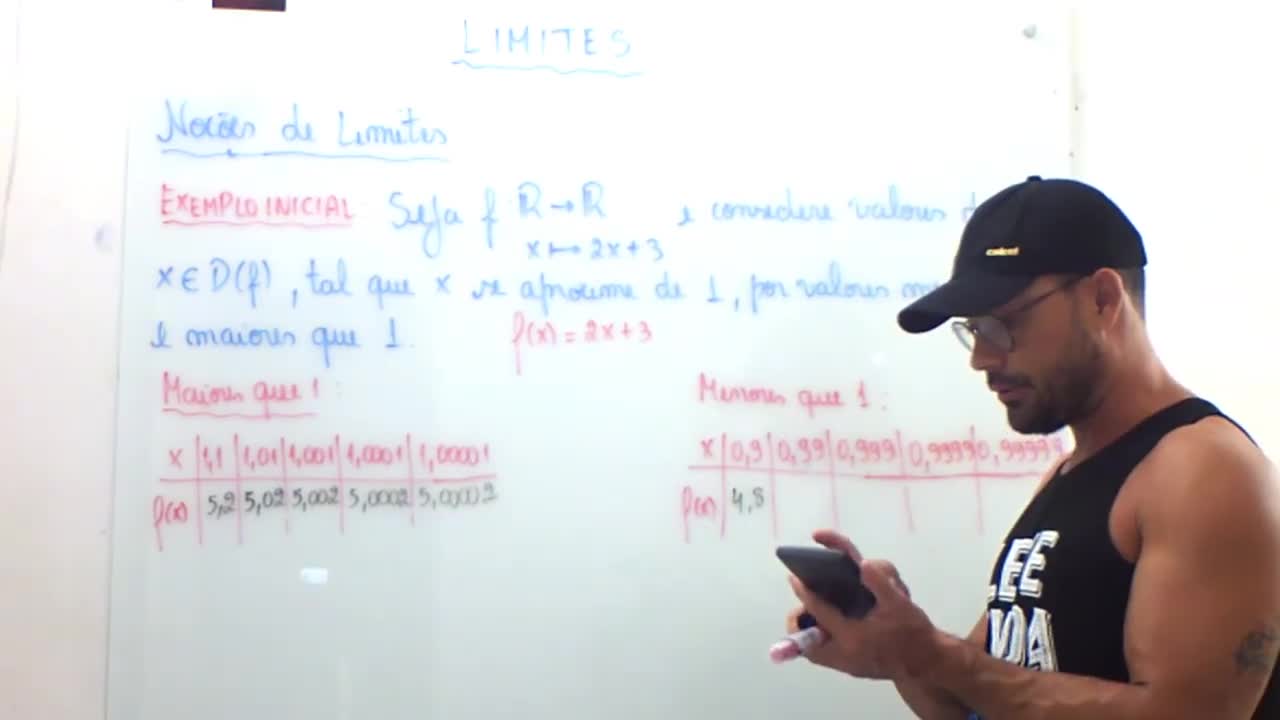 LIMITES
Noções de Limites
EXEMPLO INICIAL: Seja f ℝ → ℝ e considere valores
x ↦ 2x+3
x ∈ D(f), tal que x se aproxime de 1, por valores
e maiores que 1. f(x) = 2x+3
Maiores que 1:
x 1,1 1,01 1,001 1,0001 1,00001
f(x) 5,2 5,02 5,002 5,0002 5,00002
Menores que 1:
x 0,9 0,99 0,999 0,9999 0,99999
f(x) 4,8